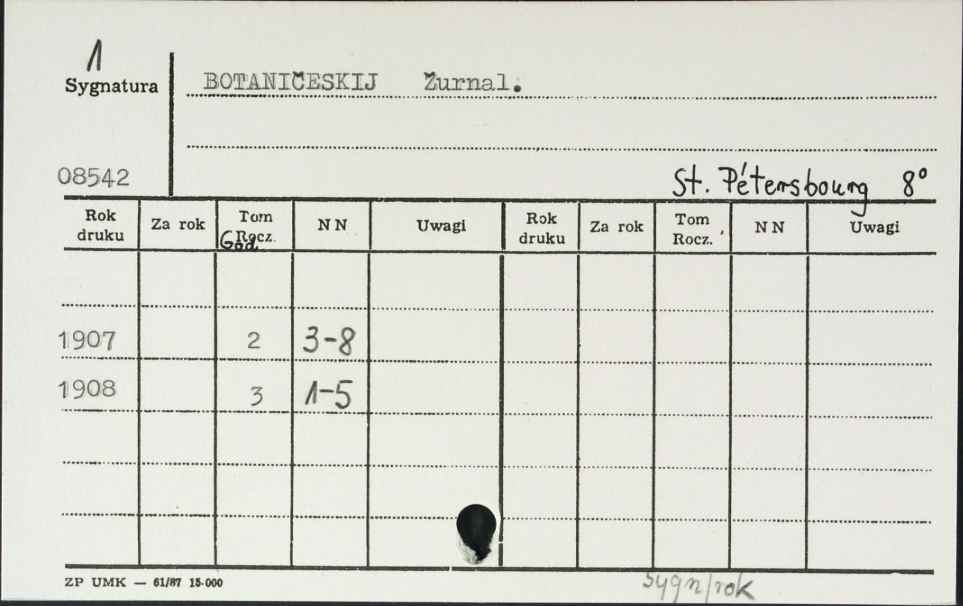 1
Sygnatura
BOTANIČESKIJ Žurnal.
08542
St. Pétersbourg 8°
Rok druku Za rok Tom Rocz. God NN Uwagi Rok druku Za rok Tom Rocz. NN Uwagi
1907 2 3-8
1908 3 1-5
ZP UMK — 61/87 15-000
sygn/rok